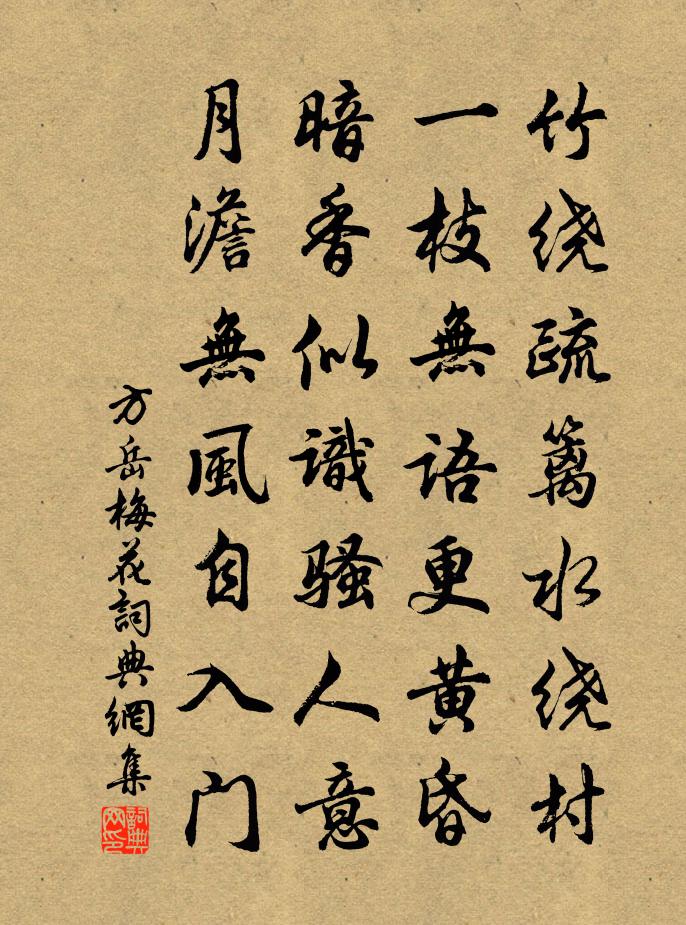 竹绕疏篱水绕村
一枝無語更黄昏
暗香似識骚人意
月澹無風自入门
方岳梅花詞典網集
詞典网印